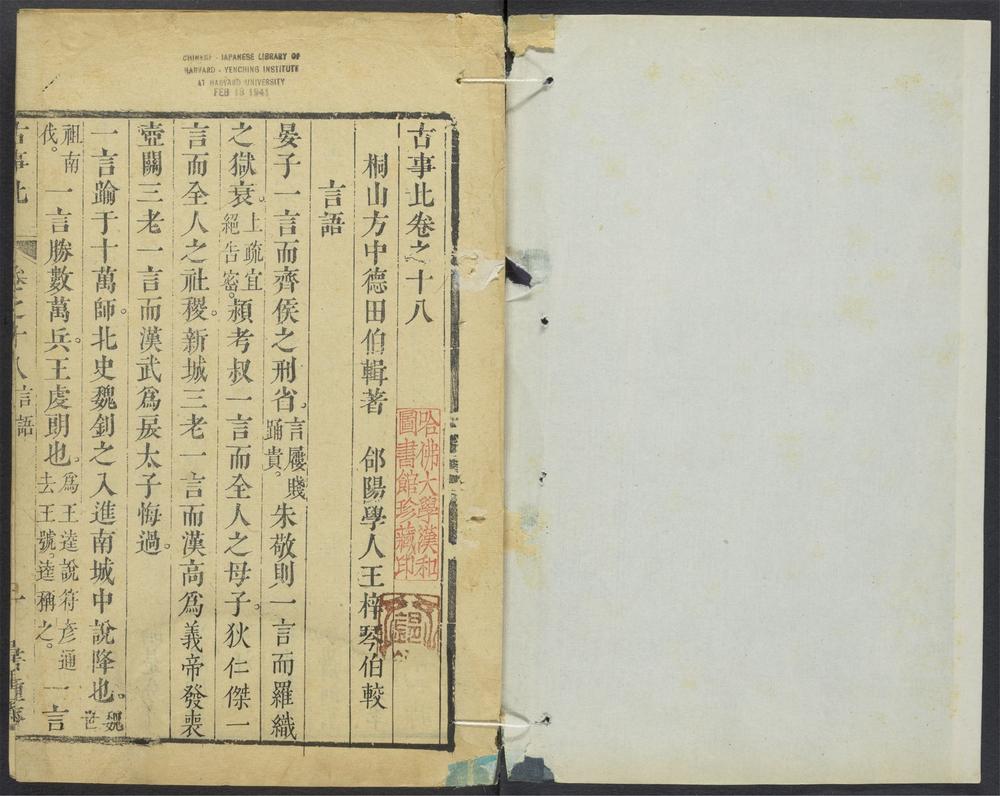 CHINESE - JAPANESE LIBRARY OF
HARVARD - YENCHING INSTITUTE
AT HARVARD UNIVERSITY
FEB 18 1941
古事比卷之十八
桐山方中德田伯輯著　郃陽學人王梓琴伯較
言語
晏子一言而齊侯之刑省。言屨賤踊貴。朱敬則一言而羅織
之獄衰。上疏宜絕告密。潁考叔一言而全人之母子。狄仁傑一
言而全人之社稷。新城三老一言而漢高爲義帝發喪
壺關三老一言而漢武爲戾太子悔過。
一言踰于十萬師。北史魏釗之入進南城中說降也。魏
祖南伐。一言勝數萬兵。王虔朗也。爲王逵說符彥通去王號。逵稱之。一言
古事比　卷之十八 言語　一
哈佛大學漢和
圖書館珍藏印